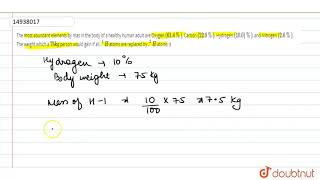 14938017
The most abundant elements by mas in the body of a healthy human adult are Oxygen (61.4 % ) Carbon (22.9 % ) Hydrogen (10.0) % ) and Nitrogen (2.6 % )
The weight which a 75kg person would gain if all ¹H atoms are replaced by ²H atoms is
Hydrogen → 10%
Body weight → 75 kg
Mass of H-1 → 10/100 × 75 → 7.5 kg
doubtnut